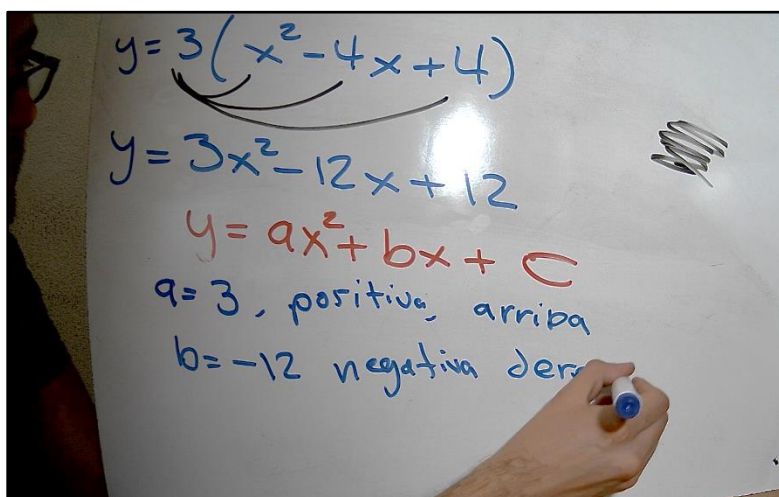 y = 3(x² - 4x + 4)
y = 3x² - 12x + 12
y = ax² + bx + c
a = 3, positiva, arriba
b = -12 negativa